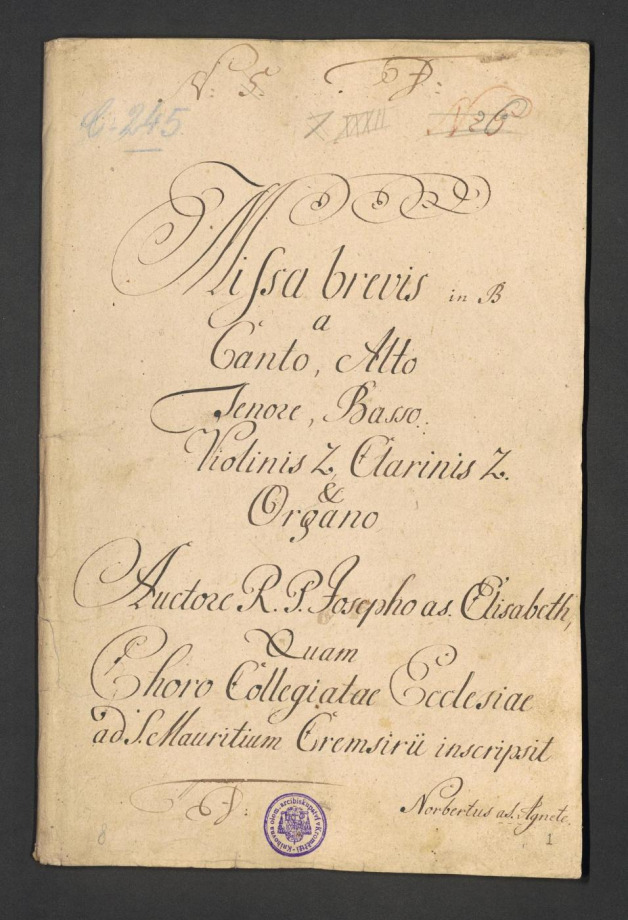 N: 5.
C. 245.
X XXXII
N 26
Missa brevis in B
a
Canto, Alto
Tenore, Basso.
Violinis 2, Clarinis 2.
&
Organo
Auctore R. P. Josepho a s. Elisabeth,
Quam
Choro Collegiatae Ecclesiae
ad S. Mauritium Cremsirii inscripsit
Norbertus a s. Agnete.
8
1